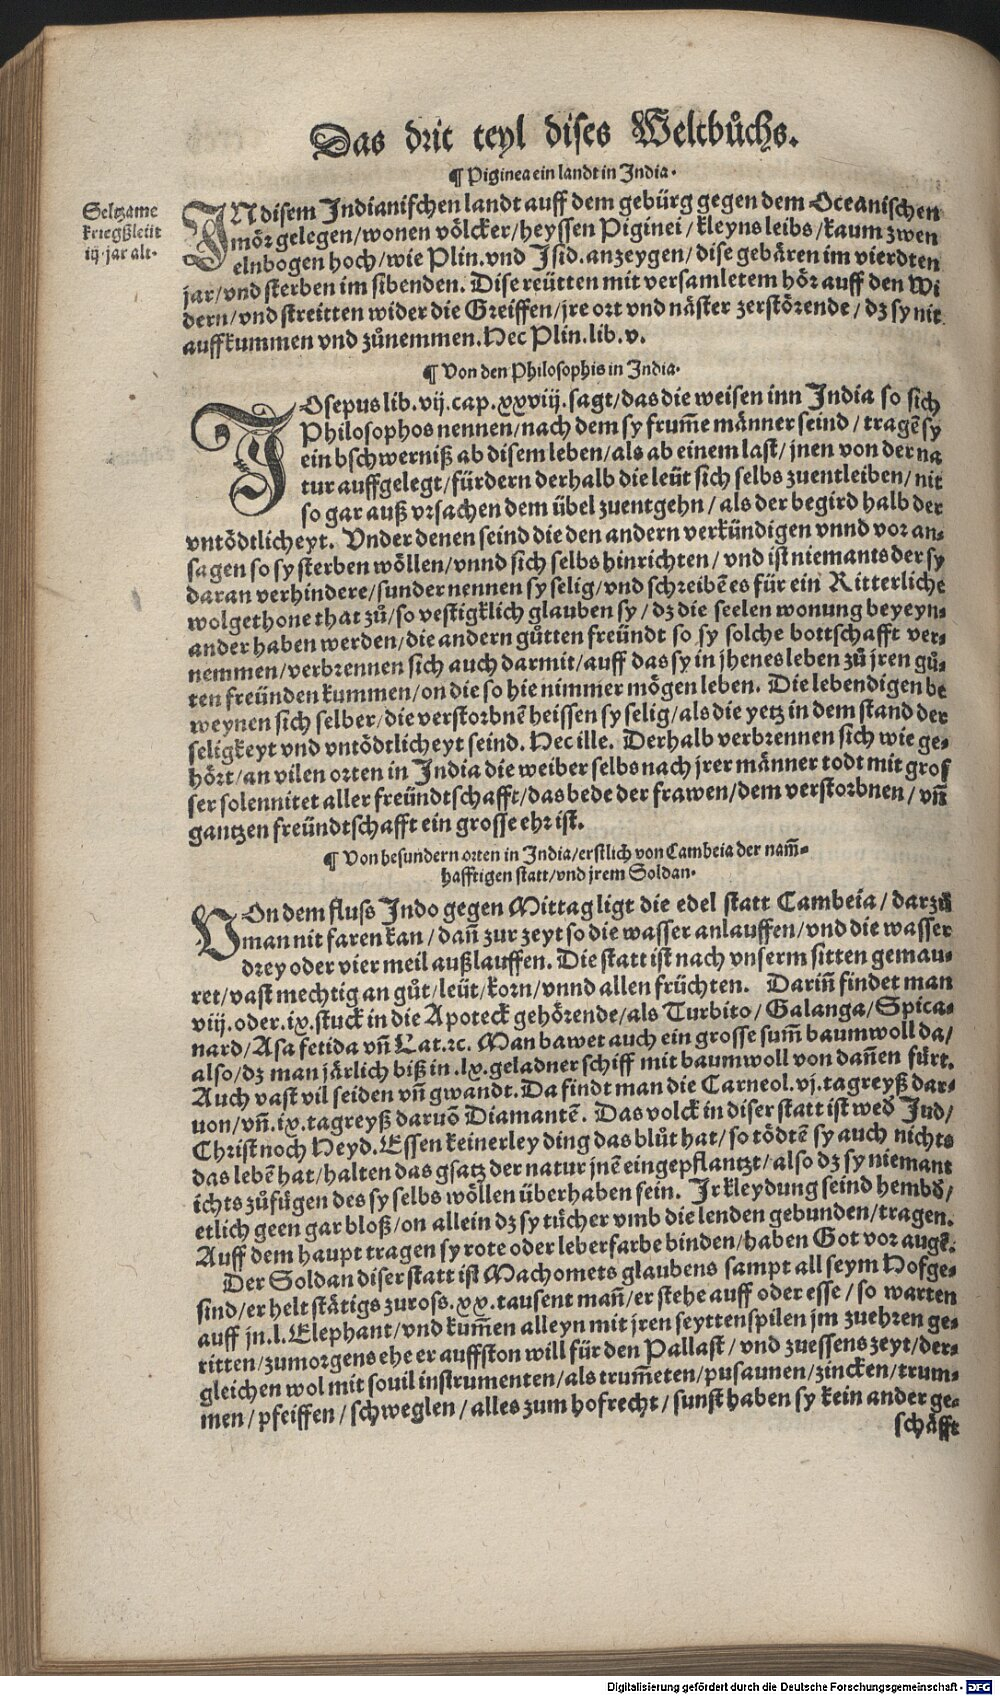 Das drit teyl dises Weltbůchs.
¶ Piginea ein landt in India.
Seltzame
kriegßleüt
iij. jar alt.
IN disem Indianischen landt auff dem gebürg gegen dem Oceanischen
mör gelegen/wonen völcker/heyssen Piginei/kleyns leibs/kaum zwen
elnbogen hoch/wie Plin. vnd Isid. anzeygen/dise gebären im vierdten
jar/vnd sterben im sibenden. Dise reütten mit versamletem hör auff den Wi
dern/vnd streitten wider die Greiffen/jre ort vnd näster zerstörende/dz sy nit
auffkummen vnd zůnemmen. Hec Plin. lib. v.
¶ Von den Philosophis in India.
IOsepus lib. vij. cap. xxviij. sagt/das die weisen inn India so sich
Philosophos nennen/nach dem sy frum̃e männer seind/tragẽ sy
ein bschwerniß ab disem leben/als ab einem last/jnen von der na
tur auffgelegt/fürdern derhalb die leüt sich selbs zuentleiben/nit
so gar auß vrsachen dem übel zuentgehn/als der begird halb der
vntödtlicheyt. Vnder denen seind die den andern verkündigen vnnd vor an-
sagen so sy sterben wöllen/vnnd sich selbs hinrichten/vnd ist niemants der sy
daran verhindere/sunder nennen sy selig/vnd schreibẽ es für ein Ritterliche
wolgethone that zů/so vestigklich glauben sy/dz die seelen wonung beyeyn-
ander haben werden/die andern gůtten freündt so sy solche bottschafft ver-
nemmen/verbrennen sich auch darmit/auff das sy in jhenes leben zů jren gů-
ten freünden kummen/on die so hie nimmer mögen leben. Die lebendigen be
weynen sich selber/die verstorbnẽ heissen sy selig/als die yetz in dem stand der
seligkeyt vnd vntödtlicheyt seind. Hec ille. Derhalb verbrennen sich wie ge-
hört/an vilen orten in India die weiber selbs nach jrer männer todt mit gros
ser solennitet aller freündtschafft/das bede der frawen/dem verstorbnen/vñ
gantzen freündtschafft ein grosse ehr ist.
¶ Von besundern orten in India/erstlich von Cambeia der nam̃-
hafftigen statt/vnd jrem Soldan.
VOn dem fluss Indo gegen Mittag ligt die edel statt Cambeia/darzů
man nit faren kan/dañ zur zeyt so die wasser anlauffen/vnd die wasser
drey oder vier meil außlauffen. Die statt ist nach vnserm sitten gemau-
ret/vast mechtig an gůt/leüt/korn/vnnd allen früchten. Dariñ findet man
viij. oder .ix. stuck in die Apoteck gehörende/als Turbito/Galanga/Spica-
nard/Asa fetida vñ Lat. ꝛc. Man bawet auch ein grosse sum̃ baumwoll da/
also/dz man järlich biß in .lx. geladner schiff mit baumwoll von dañen fürt.
Auch vast vil seiden vñ gwandt. Da findt man die Carneol .vj. tagreyß dar-
uon/vñ .ix. tagreyß daruõ Diamantẽ. Das volck in diser statt ist wed’ Jud/
Christ noch Heyd. Essen keinerley ding das blůt hat/so tödtẽ sy auch nichts
das lebẽ hat/halten das gsatz der natur jnẽ eingepflantzt/also dz sy niemant
ichts zůfügen des sy selbs wöllen überhaben sein. Jr kleydung seind hembd’/
etlich geen gar bloß/on allein dz sy tücher vmb die lenden gebunden/tragen.
Auff dem haupt tragen sy rote oder leberfarbe binden/haben Got vor augẽ.
Der Soldan diser statt ist Machomets glaubens sampt all seym Hofge-
sind/er helt stätigs zu ross .xx. tausent mañ/er stehe auff oder esse/so warten
auff jn .l. Elephant/vnd kum̃en alleyn mit jren seyttenspilen jm zu ehren ge-
ritten/zumorgens ehe er auffston will für den Pallast/vnd zuessens zeyt/der-
gleichen wol mit souil instrumenten/als trum̃eten/pusaunen/zincken/trum-
men/pfeiffen/schweglen/alles zum hofrecht/sunst haben sy kein ander ge-
schäfft
Digitalisierung gefördert durch die Deutsche Forschungsgemeinschaft - DFG